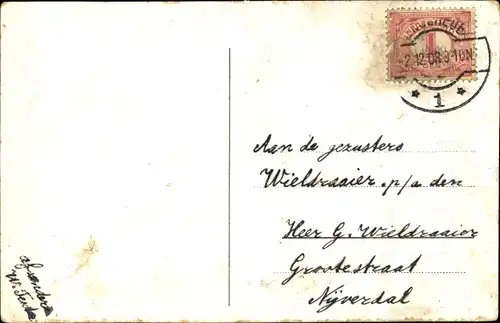 2.12.08.9-10N
1
1
Aan de gezusters
Wieldraaier p/a den
Heer G. Wieldraaier
Grootestraat
Nijverdal
afzendster
W.